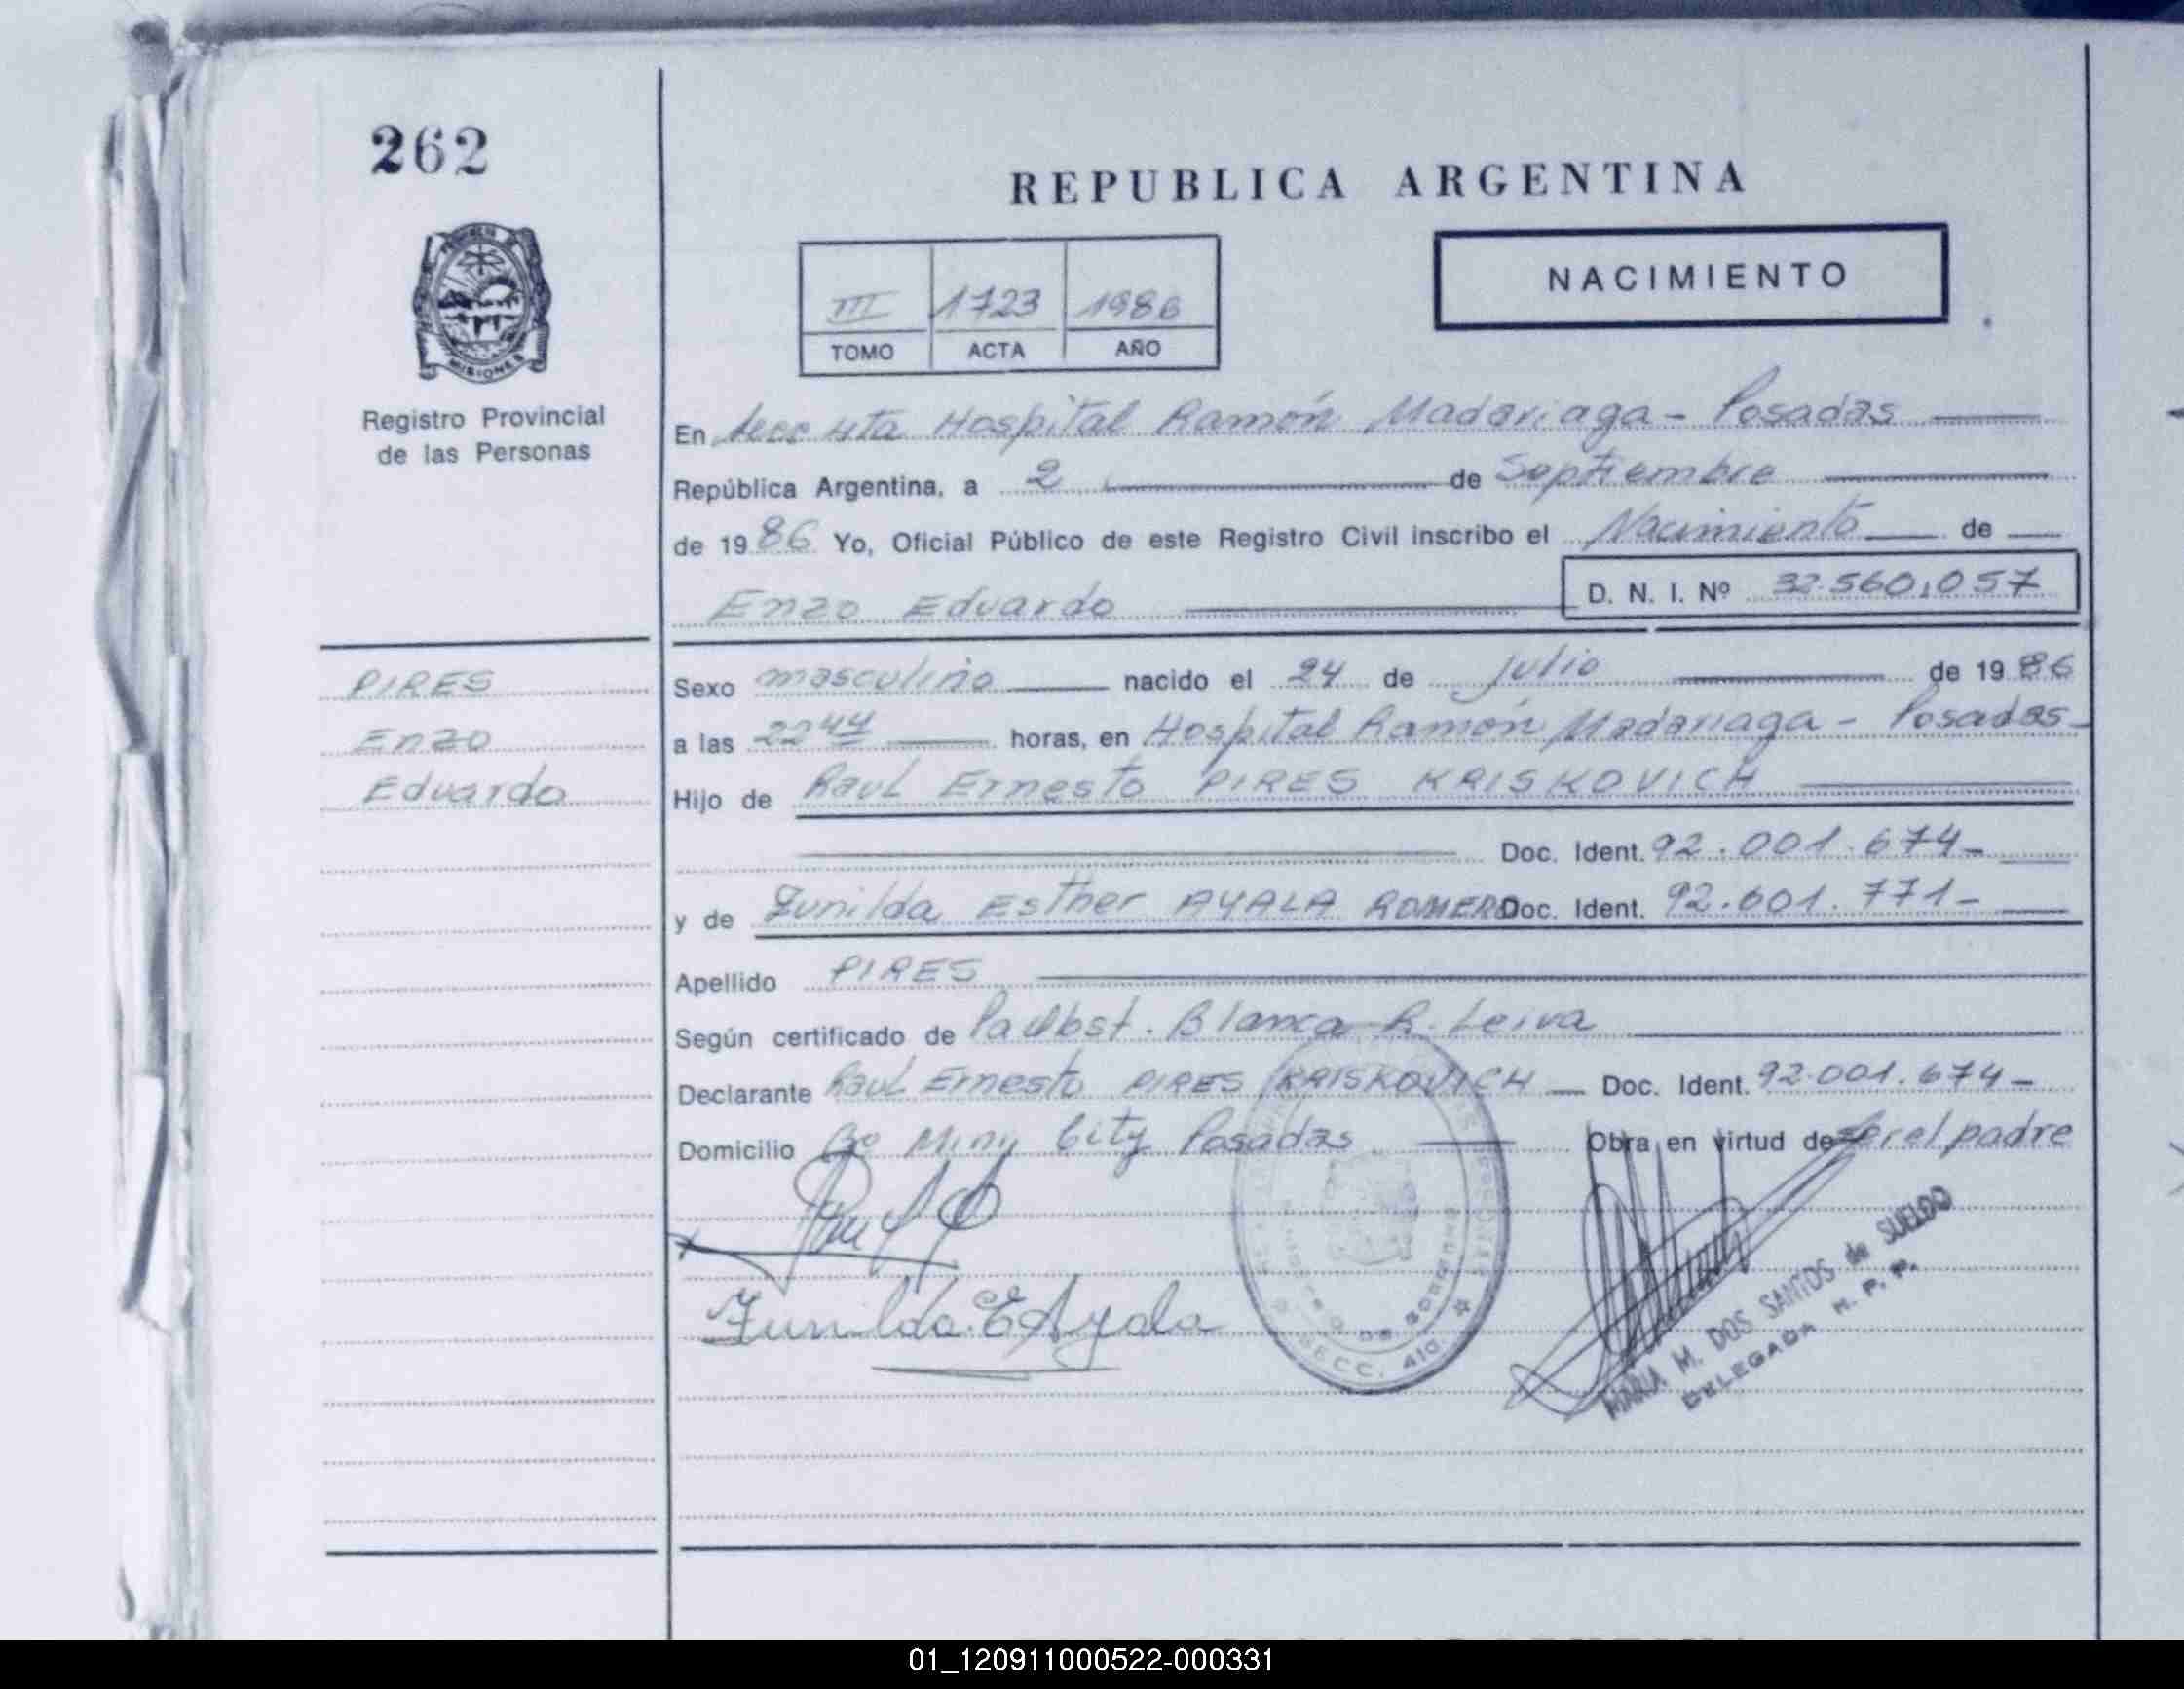 262
REPUBLICA ARGENTINA
NACIMIENTO
III 1723 1986
TOMO ACTA AÑO
MISIONES
Registro Provincial
de las Personas
En Secc 4ta Hospital Ramón Madariaga - Posadas
República Argentina, a 2 de Septiembre
de 1986 Yo, Oficial Público de este Registro Civil inscribo el Nacimiento de
Enzo Eduardo D. N. I. Nº 32.560.057
PIRES
Enzo
Eduardo
Sexo masculino nacido el 24 de julio de 1986
a las 22 44 horas, en Hospital Ramón Madariaga - Posadas -
Hijo de Raul Ernesto PIRES KRISKOVICH
Doc. Ident. 92.001.674 -
y de Zunilda Esther AYALA ROMERO Doc. Ident. 92.601.771 -
Apellido PIRES
Según certificado de Blanca R. Leiva
Declarante Raul Ernesto PIRES KRISKOVICH — Doc. Ident. 92.001.674 -
Domicilio Bo Miny City Posadas Obra en virtud de ser el padre
Zunilda E Ayala
SECC. 4ta
MARIA M. DOS SANTOS de SUELDO
DELEGADA R. P. P.
01_120911000522-000331